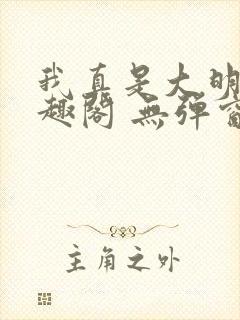 我真是大明
趣阁 無弹窗
主角之外